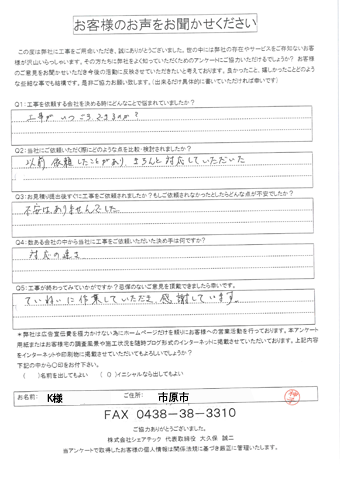 お客様のお声をお聞かせください
この度は弊社に工事をご用命いただき、誠にありがとうございました。世の中には弊社の存在やサービスをご存知ないお客
様が沢山いらっしゃいます。その方たちに弊社をよく知っていただくためのアンケートにご協力いただけるでしょうか? お客様
のご意見をお聞かせいただき今後の活動に反映させていただきたいと考えております。良かったこと、嬉しかったことどのよう
な些細な事でも結構です。是非ご協力お願い致します。(出来るだけ具体的に書いていただければ幸いです)
Q1:工事を依頼する会社を決める時にどんなことで悩まれていましたか?
工事が いつごろできるのか?
Q2:当社にご依頼いただく際にどのような点を比較・検討されましたか?
以前依頼したことがあり、きちんと対応していただいた
Q3:お見積り提出後すぐに工事をご依頼されましたか?もしご依頼されなかったとしたらどんな点が不安でしたか?
不安はありませんでした
Q4:数ある会社の中から当社に工事をご依頼いただいた決め手は何ですか?
対応の速さ
Q5:工事が終わってみていかがですか?忌憚のないご意見を頂戴できましたら幸いです。
ていねいに作業していただき、感謝しています。
*弊社は広告宣伝費を極力かけない為にホームページだけを頼りにお客様への営業活動を行っております。本アンケート
用紙またはお客様宅の調査風景や施工状況を随時ブログ形式のインターネットに掲載させていただいております。上記内容
をインターネットや印刷物に掲載させていただいてもよろしいでしょうか?
下記の中から〇印をお付下さい。
( )名前を出してもよい ( 〇 )イニシャルなら出してもよい
お名前: K様 ご住所: 市原市
FAX 0438-38-3310
ご協力ありがとうございました。
株式会社シェアテック 代表取締役 大久保 誠二
当アンケートで取得したお客様の個人情報は関係法規に基づき厳正に管理いたします。